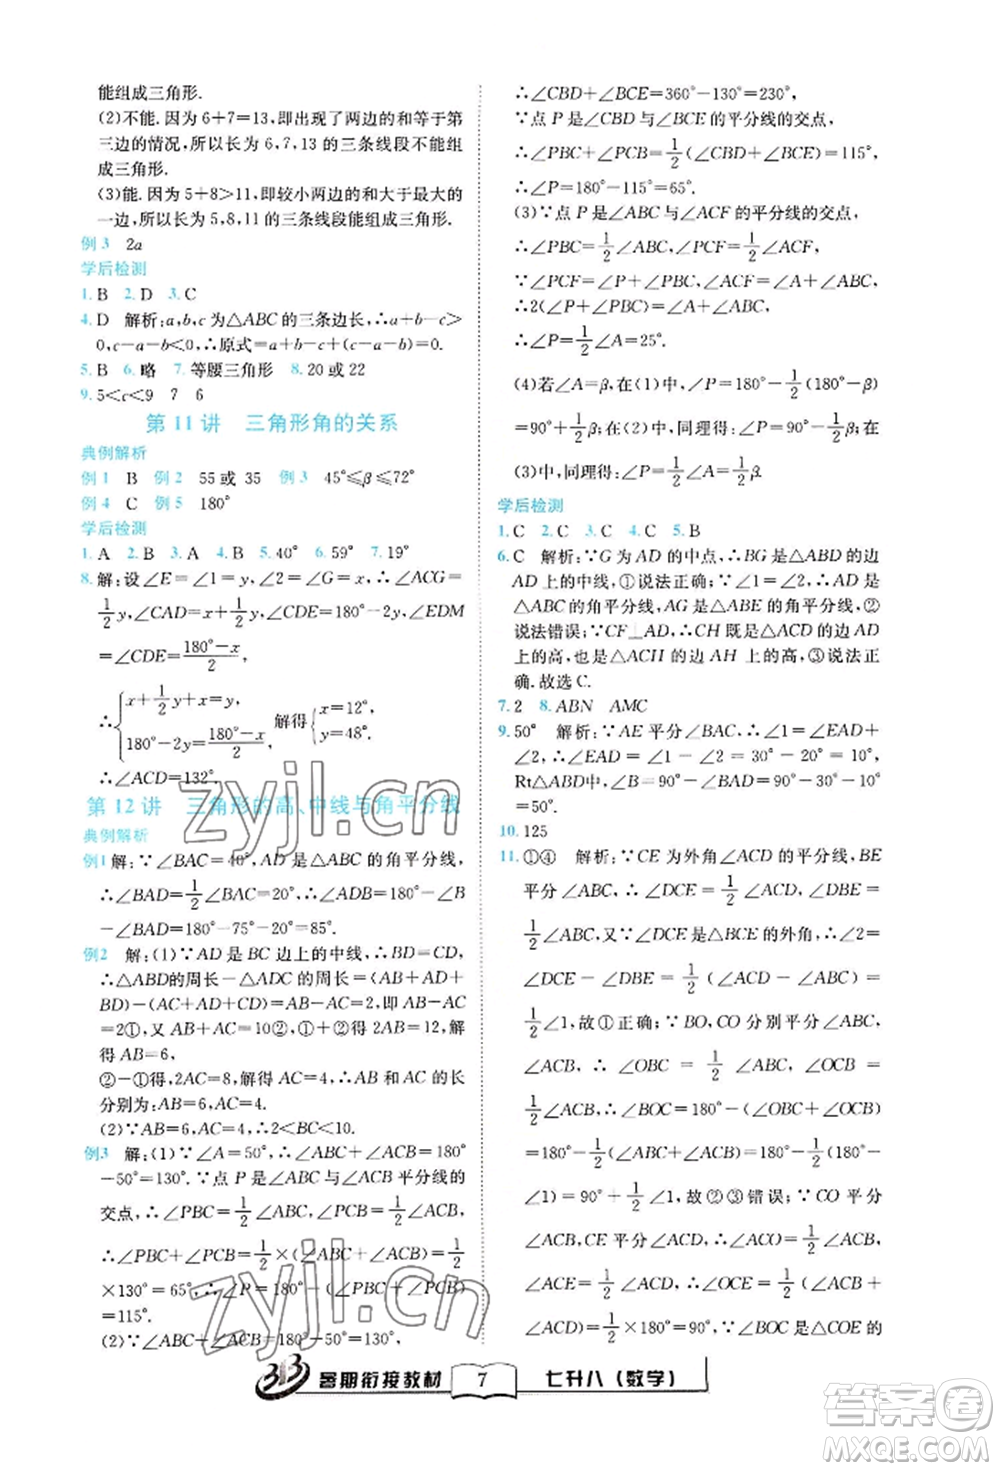 能组成三角形.
(2)不能.因为6+7=13,即出现了两边的和等于第
三边的情况,所以长为6,7,13的三条线段不能组
成三角形.
(3)能.因为5+8>11,即较小两边的和大于最大的
一边,所以5,8,11的三条线段能组成三角形.
例3 2a
学后检测
1. B 2. D 3. C
4. D 解析:a,b,c为△ABC的三条边长,∴a+b-c>
0,c-a-b<0,∴原式=a+b-c+c-a-b=0.
5. B 6. 略 7. 等腰三角形 8. 20或22
9. 5<c<9 7 6
第11讲 三角形角的关系
典例解析
例1 B 例2 55或35 例3 45°≤β≤72°
例4 C 例5 180°
学后检测
1. A 2. B 3. A 4. B 5. 40° 6. 59° 7. 19°
8. 解:设∠E=∠1=x,∠2=y,则∠B=∠ACG=
1/2y,∠CAD=x+1/2y,∠CDE=180°-2y,∠EDM
=∠CDE=(180°-x)/2,
∴{x+1/2y+y+x=180° 180°-2y=(180°-x)/2 解得{x=12°, y=48°.
∴∠ACD=132°.
第12讲 三角形的高、中线与角平分线
典例解析
例1 解:∵∠BAC=40°,AD是△ABC的角平分线,
∴∠BAD=1/2∠BAC=20°,∴∠ADB=180°-∠B
-∠BAD=180°-75°-20°=85°.
例2 解:(1)∵AD是BC边上的中线,∴BD=CD,
∴△ABD的周长-△ADC的周长=(AB+AD+
BD)-(AC+AD+CD)=AB-AC=2,即AB-AC
=2①,又AB+AC=10②,①+②得2AB=12,解
得AB=6,
②-①得,2AC=8,解得AC=4,∴AB和AC的长
分别为:AB=6,AC=4.
(2)∵AB=6,AC=4,∴2<BC<10.
例3 解:(1)∵∠A=50°,∴∠ABC+∠ACB=180°
-50°=130°.∵点P是∠ABC与∠ACB平分线的
交点,∴∠PBC=1/2∠ABC,∠PCB=1/2∠ACB,
∴∠PBC+∠PCB=1/2×(∠ABC+∠ACB)=1/2
×130°=65°,∴∠P=180°-(∠PBC+∠PCB)
=115°.
(2)∵∠ABC+∠ACB=180°-50°=130°,
∴∠CBD+∠BCE=360°-130°=230°,
∵点P是∠CBD与∠BCE的平分线的交点,
∴∠PBC+∠PCB=1/2(∠CBD+∠BCE)=115°,
∴∠P=180°-115°=65°.
(3)∵点P是∠ABC与∠ACF的平分线的交点,
∴∠PBC=1/2∠ABC,∠PCF=1/2∠ACF,
∵∠PCF=∠P+∠PBC,∠ACF=∠A+∠ABC,
∴2(∠P+∠PBC)=∠A+∠ABC,
∴∠P=1/2∠A=25°.
(4)若∠A=β,则(1)中,∠P=180°-1/2(180°-β)
=90°+1/2β;(2)中,同理得:∠P=90°-1/2β;
(3)中,同理得:∠P=1/2∠A=1/2β.
学后检测
1. C 2. C 3. C 4. C 5. B
6. C 解析:∵G为AD的中点,∴BG是△ABD的边
AD上的中线,①说法正确;∵∠1=∠2,∴AD是
△ABC的角平分线,AG是△ABE的角平分线,②
说法错误;∵CF⊥AD,∴CH既是△ACD的边AD
上的高,也是△ACH的边AH上的高,③说法正
确.故选C.
7. 2 8. ABN AMC
9. 50° 解析:∵AE平分∠BAC,∴∠1=∠EAD+
∠2,∴∠EAD=∠1-∠2=30°-20°=10°,
Rt△ABD中,∠B=90°-∠BAD=90°-30°-10°
=50°.
10. 125
11. ①④ 解析:∵CE为外角∠ACD的平分线,BE
平分∠ABC,∴∠DCE=1/2∠ACD,∠DBE=
1/2∠ABC,又∵∠DCE是△BCE的外角,∴∠2
=∠DCE-∠DBE=1/2(∠ACD-∠ABC)=
1/2∠1,故①正确;∵BO,CO分别平分∠ABC,
∠ACB,∴∠OBC=1/2∠ABC,∠OCB=
1/2∠ACB,∴∠BOC=180°-(∠OBC+∠OCB)
=180°-1/2(∠ABC+∠ACB)=180°-1/2(180°
-∠1)=90°+1/2∠1,故②③错误;∵CO平分
∠ACB,CE平分∠ACD,∴∠ACO=1/2∠ACB,
∠ACE=1/2∠ACD,∴∠OCE=1/2(∠ACB+
∠ACD)=1/2×180°=90°,∵∠BOC是△COE的
313 暑期衔接教材 7 七升八(数学)
zyjl.cn
zyjl.cn
答案圈
MXQE.COM